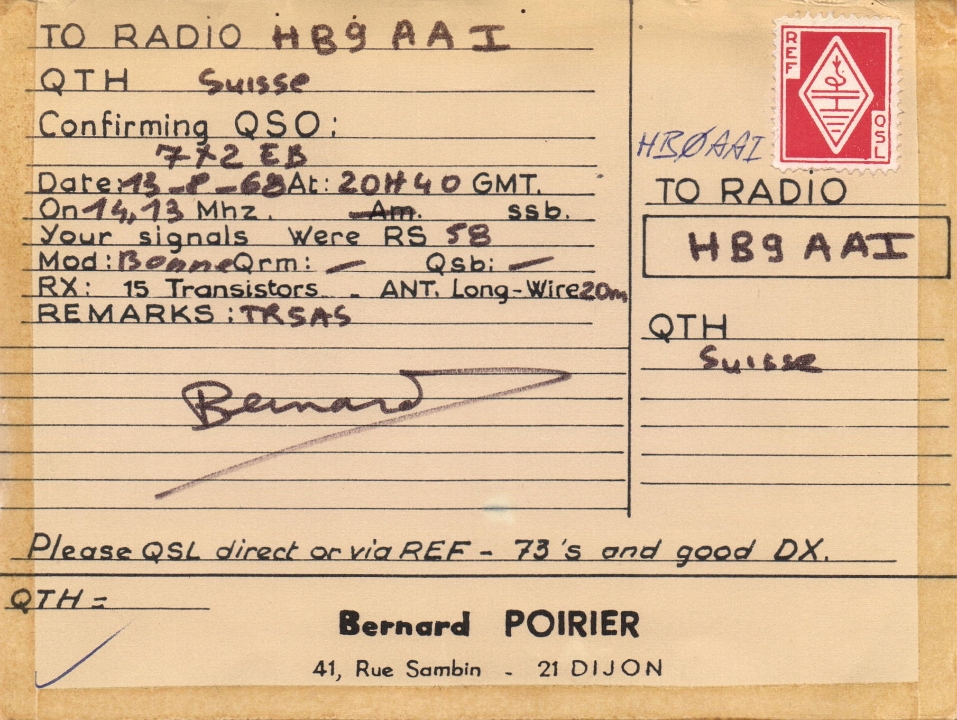 TO RADIO HB9AAI
QTH Suisse
Confirming QSO:
7X2EB
Date: 13-8-68 At: 20H40 GMT.
On 14,13 Mhz. Am. ssb.
Your signals Were RS 58
Mod: Bonne Qrm: — Qsb: —
RX: 15 Transistors - ANT. Long-Wire 20m
REMARKS: TRSAS
Bernard
REF
QSL
HBØAAI
TO RADIO
HB9AAI
QTH
Suisse
Please QSL direct or via REF - 73's and good DX.
QTH =
Bernard POIRIER
41, Rue Sambin - 21 DIJON